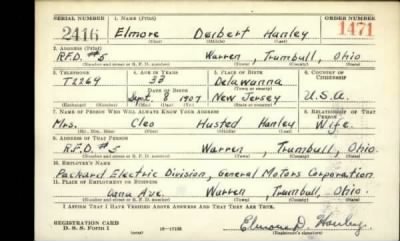 SERIAL NUMBER 1. NAME (Print) ORDER NUMBER
2416 Elmore Delbert Hanley 1471
(First) (Middle) (Last)
2. ADDRESS (Print)
R.F.D. #5 Warren, Trumbull, Ohio
(Number and street or R. F. D. number) (Town) (County) (State)
3. TELEPHONE 4. AGE IN YEARS 5. PLACE OF BIRTH 6. COUNTRY OF CITIZENSHIP
T2269 33 Delawanna
DATE OF BIRTH (Town) (County)
Sept. 8 1907 New Jersey U.S.A.
(Exchange) (Number) (Mo.) (Day) (Yr.) (State) (Country)
7. NAME OF PERSON WHO WILL ALWAYS KNOW YOUR ADDRESS 8. RELATIONSHIP OF THAT PERSON
Mrs. Cleo Husted Hanley Wife.
(Mr., Mrs., Miss) (First) (Middle) (Last)
9. ADDRESS OF THAT PERSON
R.F.D. #5 Warren, Trumbull, Ohio.
(Number and street or R. F. D. number) (Town) (County) (State)
10. EMPLOYER'S NAME
Packard Electric Division, General Motors Corporation
11. PLACE OF EMPLOYMENT OR BUSINESS
Dana Ave. Warren, Trumbull, Ohio.
(Number and street or R. F. D. number) (Town) (County) (State)
I AFFIRM THAT I HAVE VERIFIED ABOVE ANSWERS AND THAT THEY ARE TRUE.
REGISTRATION CARD
D. S. S. Form 1 Elmore D. Hanley
(Registrant's signature)